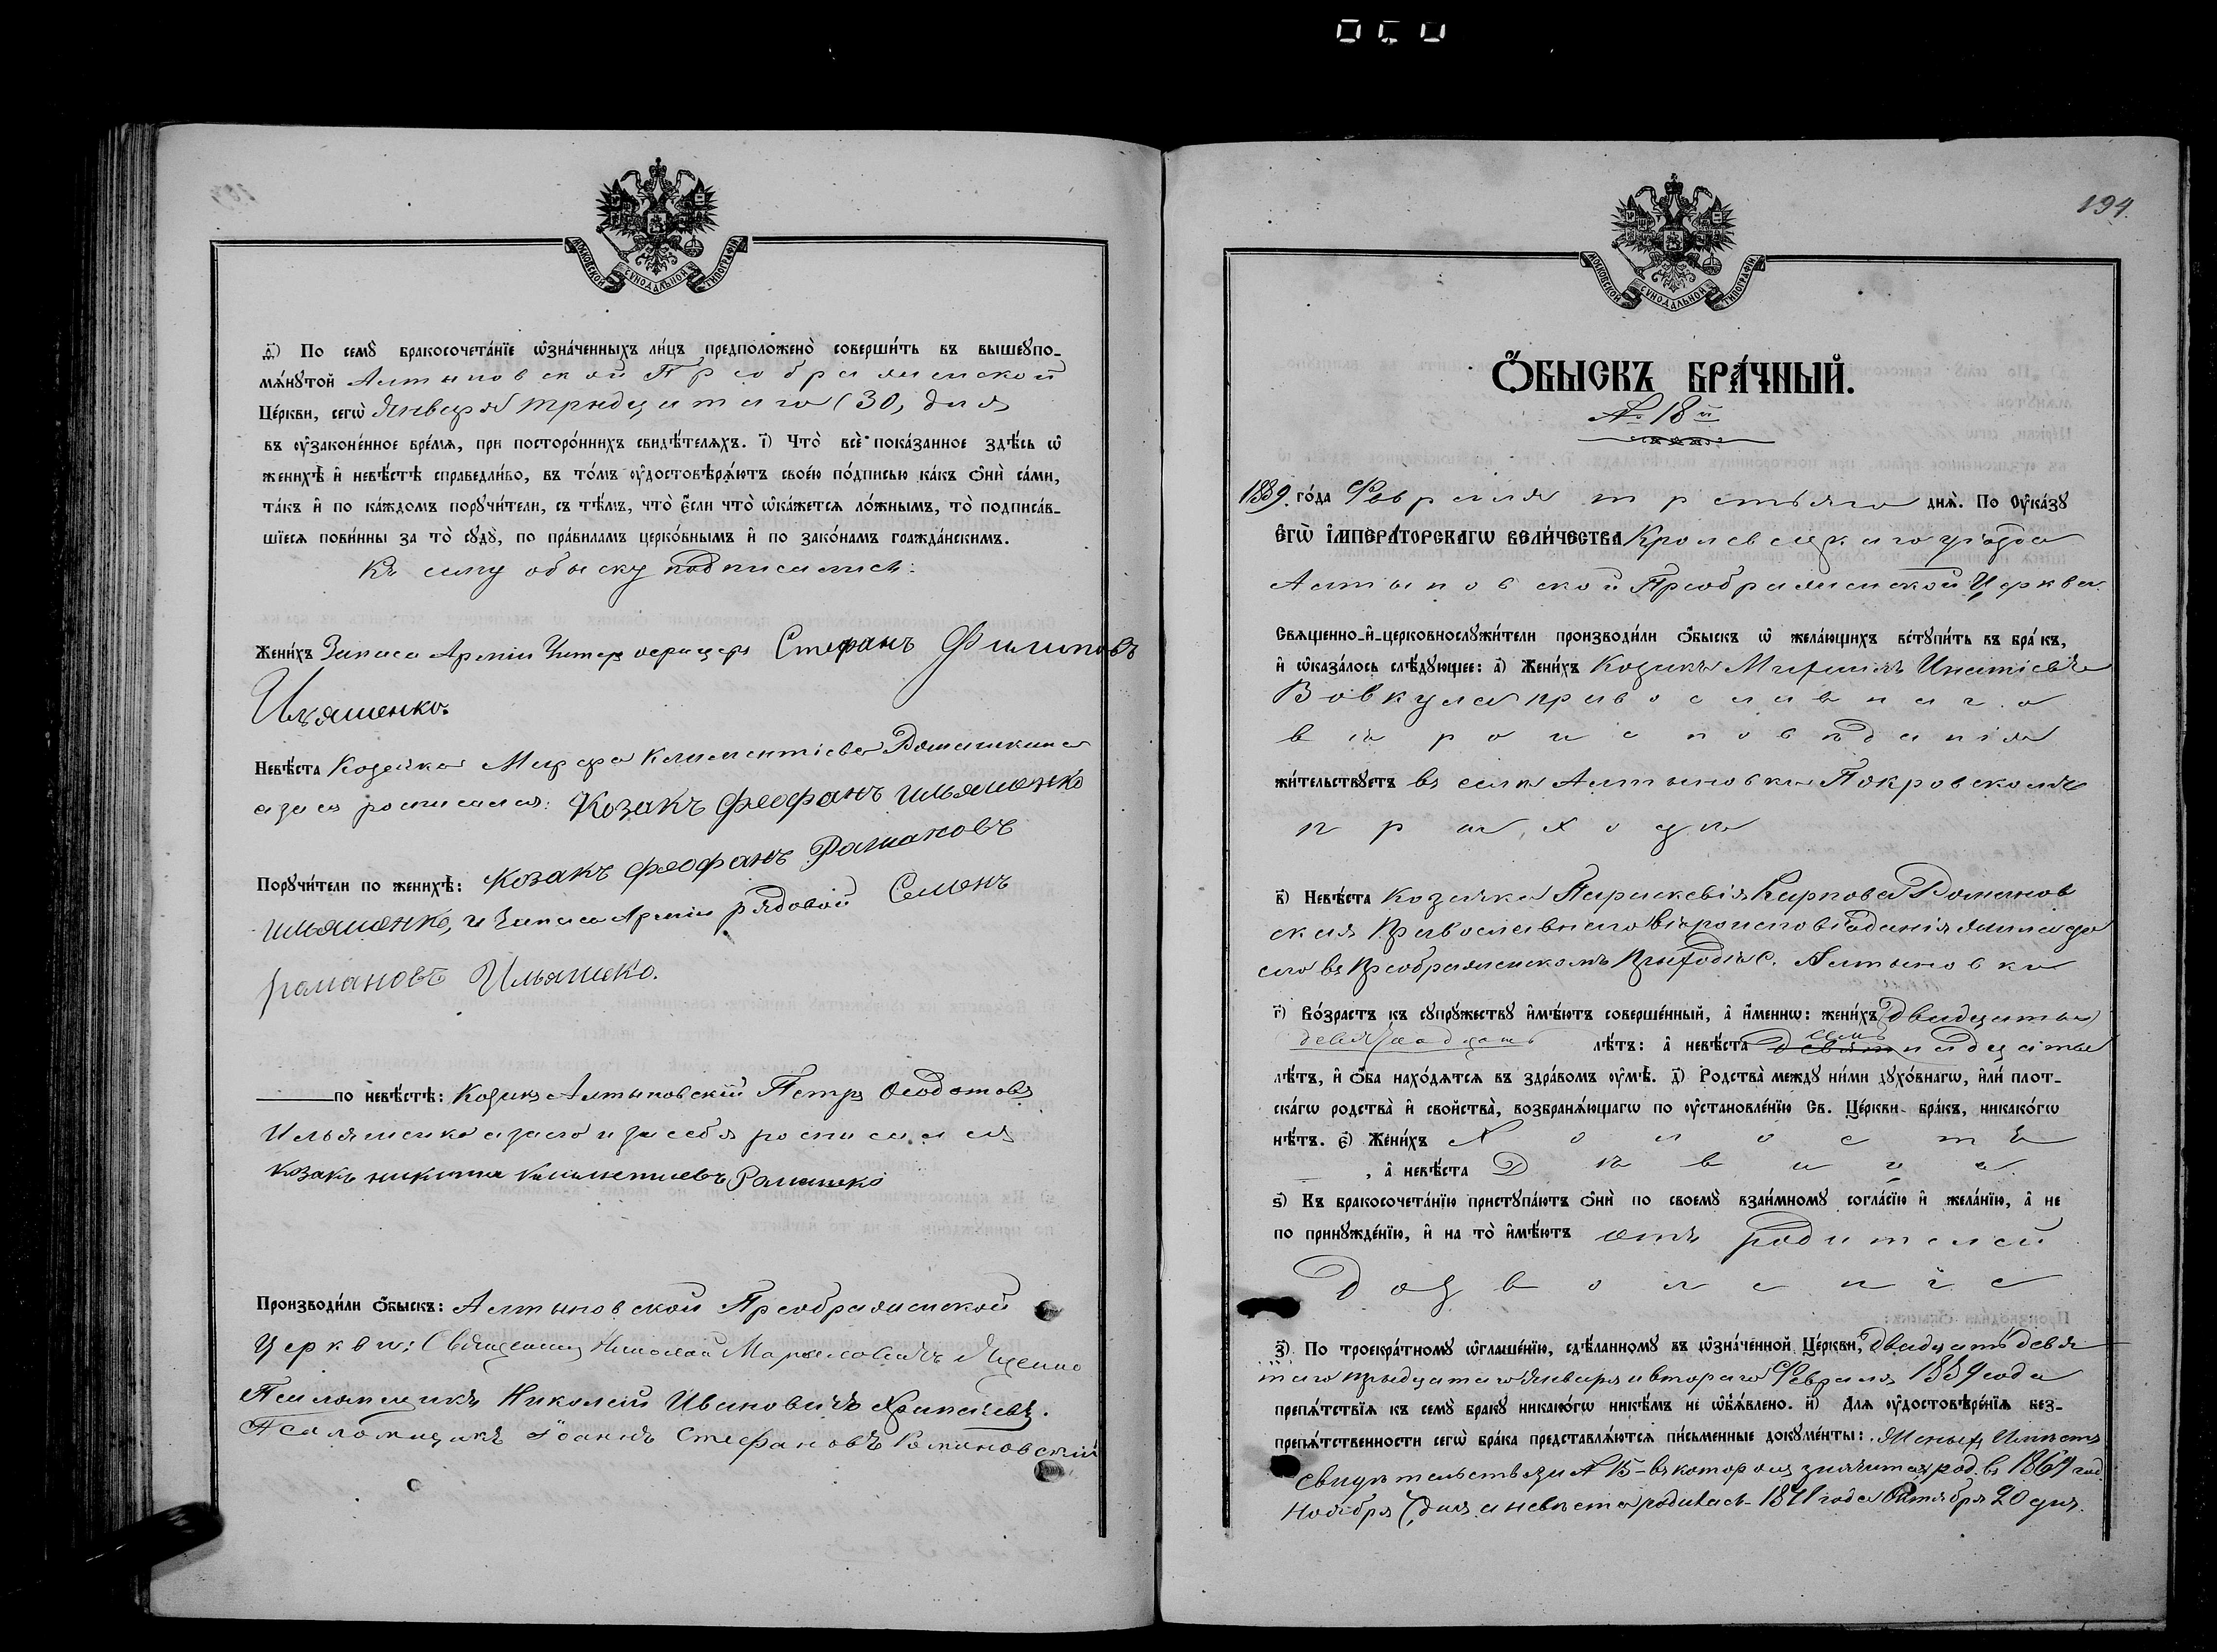 МОСКОВСКОЙ СѴНОДАЛЬНОЙ ТИПОГРАФІИ
д҃) По семꙋ̀ бракосочета́нїе ѡ҆зна́ченныхъ ли́цъ предположено̀ соверши́ть въ вышеꙋпо-
мѧ́нꙋтой Алтыновской Преображенской
Це́ркви, сегѡ̀ Января тридцятаго (30) дня
въ ᲂу҆законе́нное вре́мѧ, при посторо́ннихъ свидѣ́телѧхъ. і҃) Что̀ всѐ пока́занное здѣ́сь ѡ҆
женихѣ̀ и҆ невѣ́стѣ справедли́во, въ то́мъ ᲂу҆достовѣрѧ́ютъ свое́ю по́дписью ка́къ ѻ҆нѝ са́ми,
та́къ и҆ по ка́ждомъ порꙋчи́тели, съ тѣ́мъ, что̀ є҆́сли что̀ ѡ҆ка́жетсѧ ло́жнымъ, то̀ подписа́в-
шїесѧ пови́нны за то̀ сꙋдꙋ̀, по пра́виламъ церко́внымъ и҆ по зако́намъ гражда́нскимъ.
Къ сему обыску подписались:
Жени́хъ Запаса Армiи Унтер офицеръ Стефанъ Филиповъ
Ильяшенко.
Невѣ́ста Козачка Марфа Климентiева Ромашкина
а за ея росписался: Козакъ Феофанъ Ильяшенко
Порꙋчи́тели по женихѣ̀: Козакъ Феофанъ Романовъ
Ильяшенко, и Запаса Армiи рядовой Семенъ
романовъ Ильяшеко.
по невѣ́стѣ: Козакъ Алтыновскiй Петръ Феодотовъ
Ильяшенко а за его и за себя росписался
козакъ никита Климетиевъ Ромашко
Производи́ли ѻ҆́быскъ: Алтыновской Преображенской
Церкви: Священникъ Николай Ященко
Псаломщикъ Николай Ивановичъ
Псаломщикъ Iоаннъ Стефановъ Романовскiй
194.
МОСКОВСКОЙ СѴНОДАЛЬНОЙ ТИПОГРАФІИ
Ѻ҆́БЫСКЪ БРА́ЧНЫЙ.
№ 18й
1889 го́да Февраля третьяго днѧ̀. По Оу҆ка́зꙋ
Є҆ГѠ̀ І҆МПЕРА́ТОРСКАГѠ ВЕЛИ́ЧЕСТВА Кролевецкаго уѣзда
Алтыновской Преображенской Церкви
Свѧще́нно-и҆-церковнослꙋжи́тели производи́ли ѻ҆́быскъ ѡ҆ жела́ющихъ встꙋпи́ть въ бра́къ,
и҆ ѡ҆каза́лось слѣ́дꙋющее: а҃) Жени́хъ Козакъ Михаилъ Игнатiевъ
Вовкула православнаго
вѣроисповѣданiя
жи́тельствꙋетъ въ селѣ Алтыновкѣ Покровскомъ
приходѣ
в҃) Невѣ́ста козачка Параскевiя Карпова Романов
ская Православнаго вѣроисповѣданiя
въ Преображенскомъ приходѣ с. Алтыновки
г҃) Во́зрастъ къ сꙋпрꙋ́жествꙋ и҆мѣ́ютъ соверше́нный, а҆ и҆́меннѡ: жени́хъ двадцяти
девятнадцать лѣ́тъ: а҆ невѣ́ста семнадцати
лѣ́тъ, и҆ ѻ҆́ба нахо́дѧтсѧ въ здра́вомъ ᲂу҆мѣ̀. д҃) Родства̀ междꙋ ни́ми дꙋхо́внагѡ, и҆лѝ плот-
ска́гѡ родства̀ и҆ свойства̀, возбранѧ́ющагѡ по ᲂу҆становле́нїю Св. Це́ркви бра́къ, никако́гѡ
нѣ́тъ. є҃) Жени́хъ Холостъ
, а҆ невѣ́ста Дѣвица
ѕ҃) Къ бракосочета́нїю пристꙋпа́ютъ ѻ҆нѝ по своемꙋ̀ взаи́мномꙋ согла́сїю и҆ жела́нїю, а҆ не
по принꙋжде́нїю, и҆ на то̀ и҆мѣ́ютъ отъ родителей
дозволенiе
з҃) По троекра́тномꙋ ѡ҆глаше́нїю, сдѣ́ланномꙋ въ ѡ҆зна́ченной Це́ркви, двадцять девя
таго тридцатаго Января и втораго Февраля 1889 года
препѧ́тствїѧ къ семꙋ̀ бракꙋ никако́гѡ никѣ́мъ не ѡ҆бъѧ́влено. и҃) Длѧ ᲂу҆достовѣре́нїѧ без-
препѧ́тственности сегѡ̀ бра́ка представлѧ́ютсѧ пи́сьменные докꙋме́нты: Женихъ имѣетъ
свидѣтельство за № 15 въ которомъ значится род. въ 1869 год.
Ноября дня а невѣста родилась 1871 года Октября 20 дня.